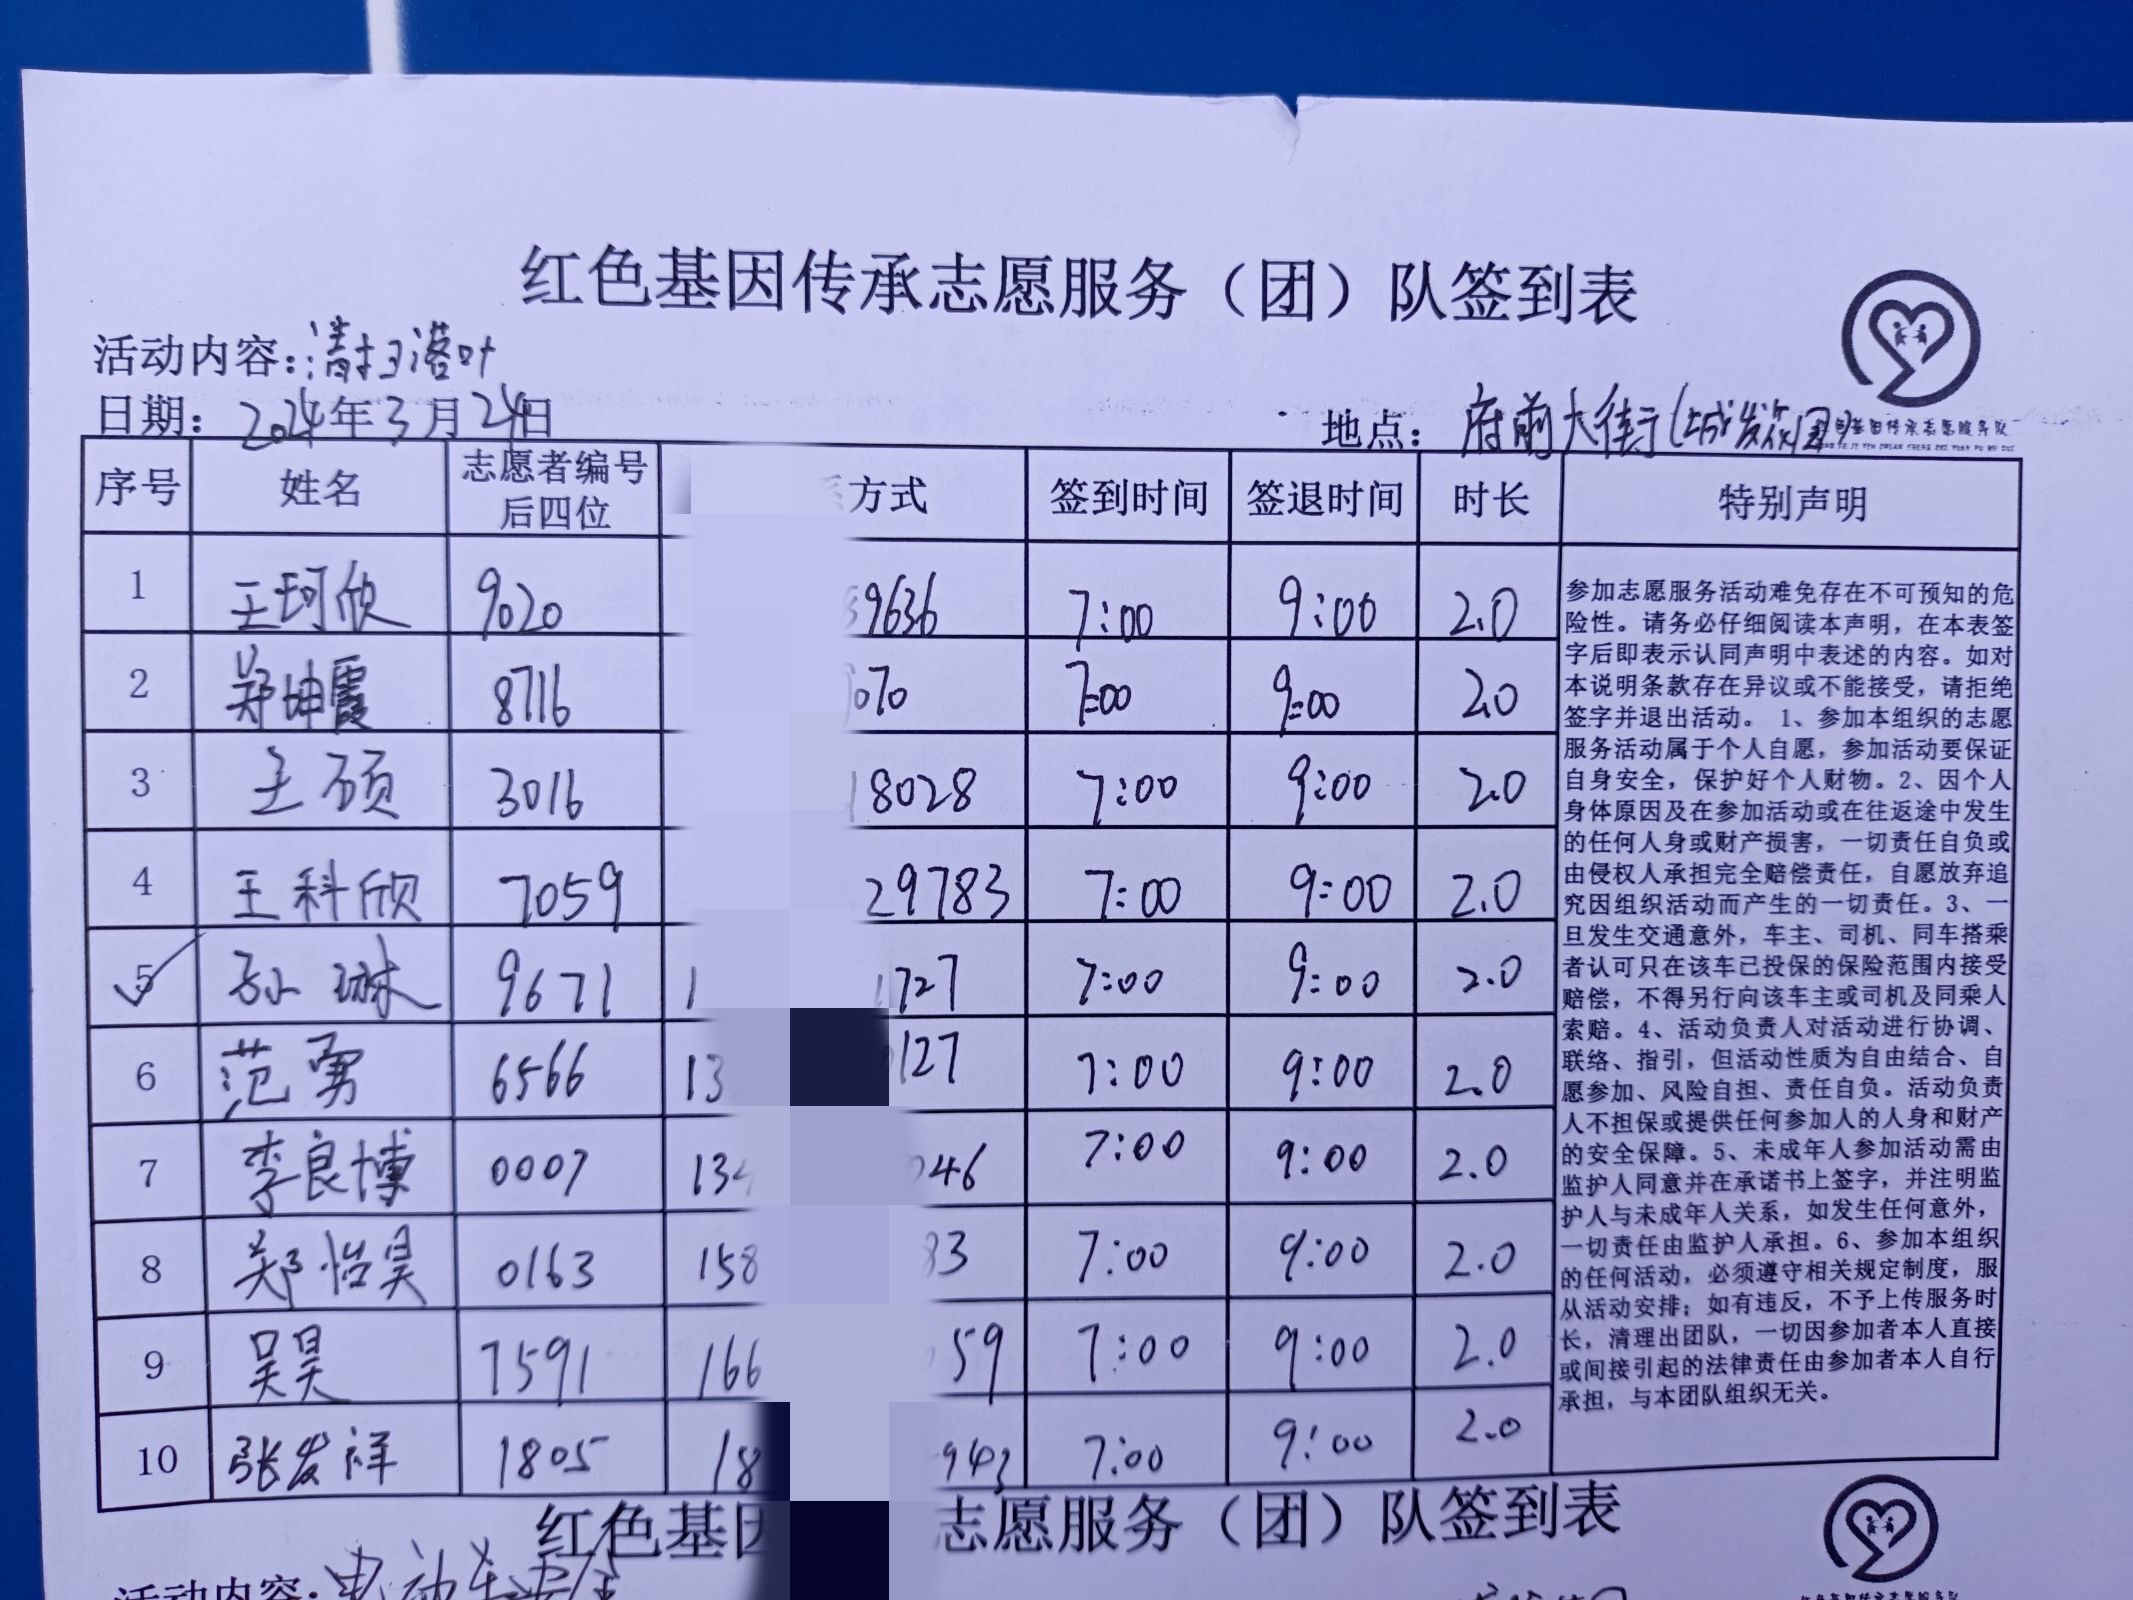 红色基因传承志愿服务（团）队签到表
活动内容：清扫落叶
日期：2024年3月24日 地点：府前大街(城发
红色基因传承志愿服务队
序号 姓名 志愿者编号后四位 方式 签到时间 签退时间 时长 特别声明
1 王珂欣 9020 9636 7:00 9:00 2.0
2 郑坤霞 8716 070 7:00 9:00 2.0
3 王硕 3016 18028 7:00 9:00 2.0
4 王科欣 7059 29783 7:00 9:00 2.0
5 孙琳 9671 1 1727 7:00 9:00 2.0
6 范勇 6566 13 127 7:00 9:00 2.0
7 李良博 0007 134 046 7:00 9:00 2.0
8 郑怡昊 0163 158 83 7:00 9:00 2.0
9 吴昊 7591 166 59 7:00 9:00 2.0
10 张发祥 1805 18 943 7:00 9:00 2.0
参加志愿服务活动难免存在不可预知的危
险性。请务必仔细阅读本声明，在本表签
字后即表示认同声明中表述的内容。如对
本说明条款存在异议或不能接受，请拒绝
签字并退出活动。 1、参加本组织的志愿
服务活动属于个人自愿，参加活动要保证
自身安全，保护好个人财物。2、因个人
身体原因及在参加活动或在往返途中发生
的任何人身或财产损害，一切责任自负或
由侵权人承担完全赔偿责任，自愿放弃追
究因组织活动而产生的一切责任。3、一
旦发生交通意外，车主、司机、同车搭乘
者认可只在该车已投保的保险范围内接受
赔偿，不得另行向该车主或司机及同乘人
索赔。4、活动负责人对活动进行协调、
联络、指引，但活动性质为自由结合、自
愿参加、风险自担、责任自负。活动负责
人不担保或提供任何参加人的人身和财产
的安全保障。5、未成年人参加活动需由
监护人同意并在承诺书上签字，并注明监
护人与未成年人关系，如发生任何意外，
一切责任由监护人承担。6、参加本组织
的任何活动，必须遵守相关规定制度，服
从活动安排；如有违反，不予上传服务时
长，清理出团队，一切因参加者本人直接
或间接引起的法律责任由参加者本人自行
承担，与本团队组织无关。
红色基因 志愿服务（团）队签到表
活动内容：电动车